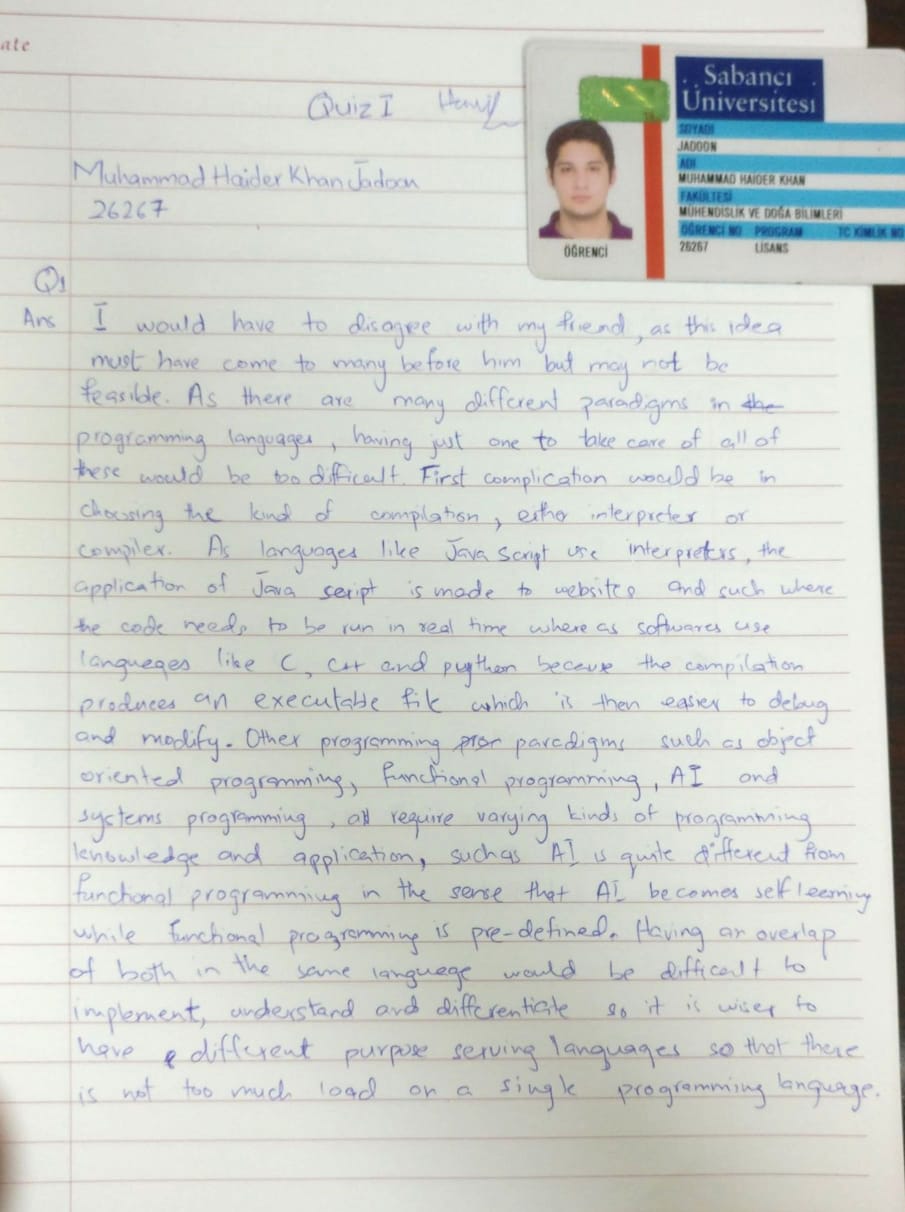 ate
Quiz I
Muhammad Haider Khan Jadoon
26267
Sabancı
Üniversitesi
SOYADI
JADOON
ADI
MUHAMMAD HAIDER KHAN
FAKÜLTESİ
MÜHENDİSLİK VE DOĞA BİLİMLERİ
ÖĞRENCİ NO PROGRAM TC KİMLİK NO
26267 LİSANS
ÖĞRENCİ
Q1
Ans I would have to disagree with my friend, as this idea
must have come to many before him but may not be
feasible. As there are many different paradigms in the
programming languages, having just one to take care of all of
these would be too difficult. First complication would be in
choosing the kind of compilation, either interpreter or
compiler. As languages like Java Script use interpreters, the
application of Java script is made to websites and such where
the code needs to be run in real time where as softwares use
languages like C, C++ and python because the compilation
produces an executable file which is then easier to debug
and modify. Other programming paradigms such as object
oriented programming, functional programming, AI and
systems programming, all require varying kinds of programming
knowledge and application, such as AI is quite different from
functional programming in the sense that AI becomes self learning
while functional programming is pre-defined. Having an overlap
of both in the same language would be difficult to
implement, understand and differentiate so it is wiser to
have different purpose serving languages so that there
is not too much load on a single programming language.